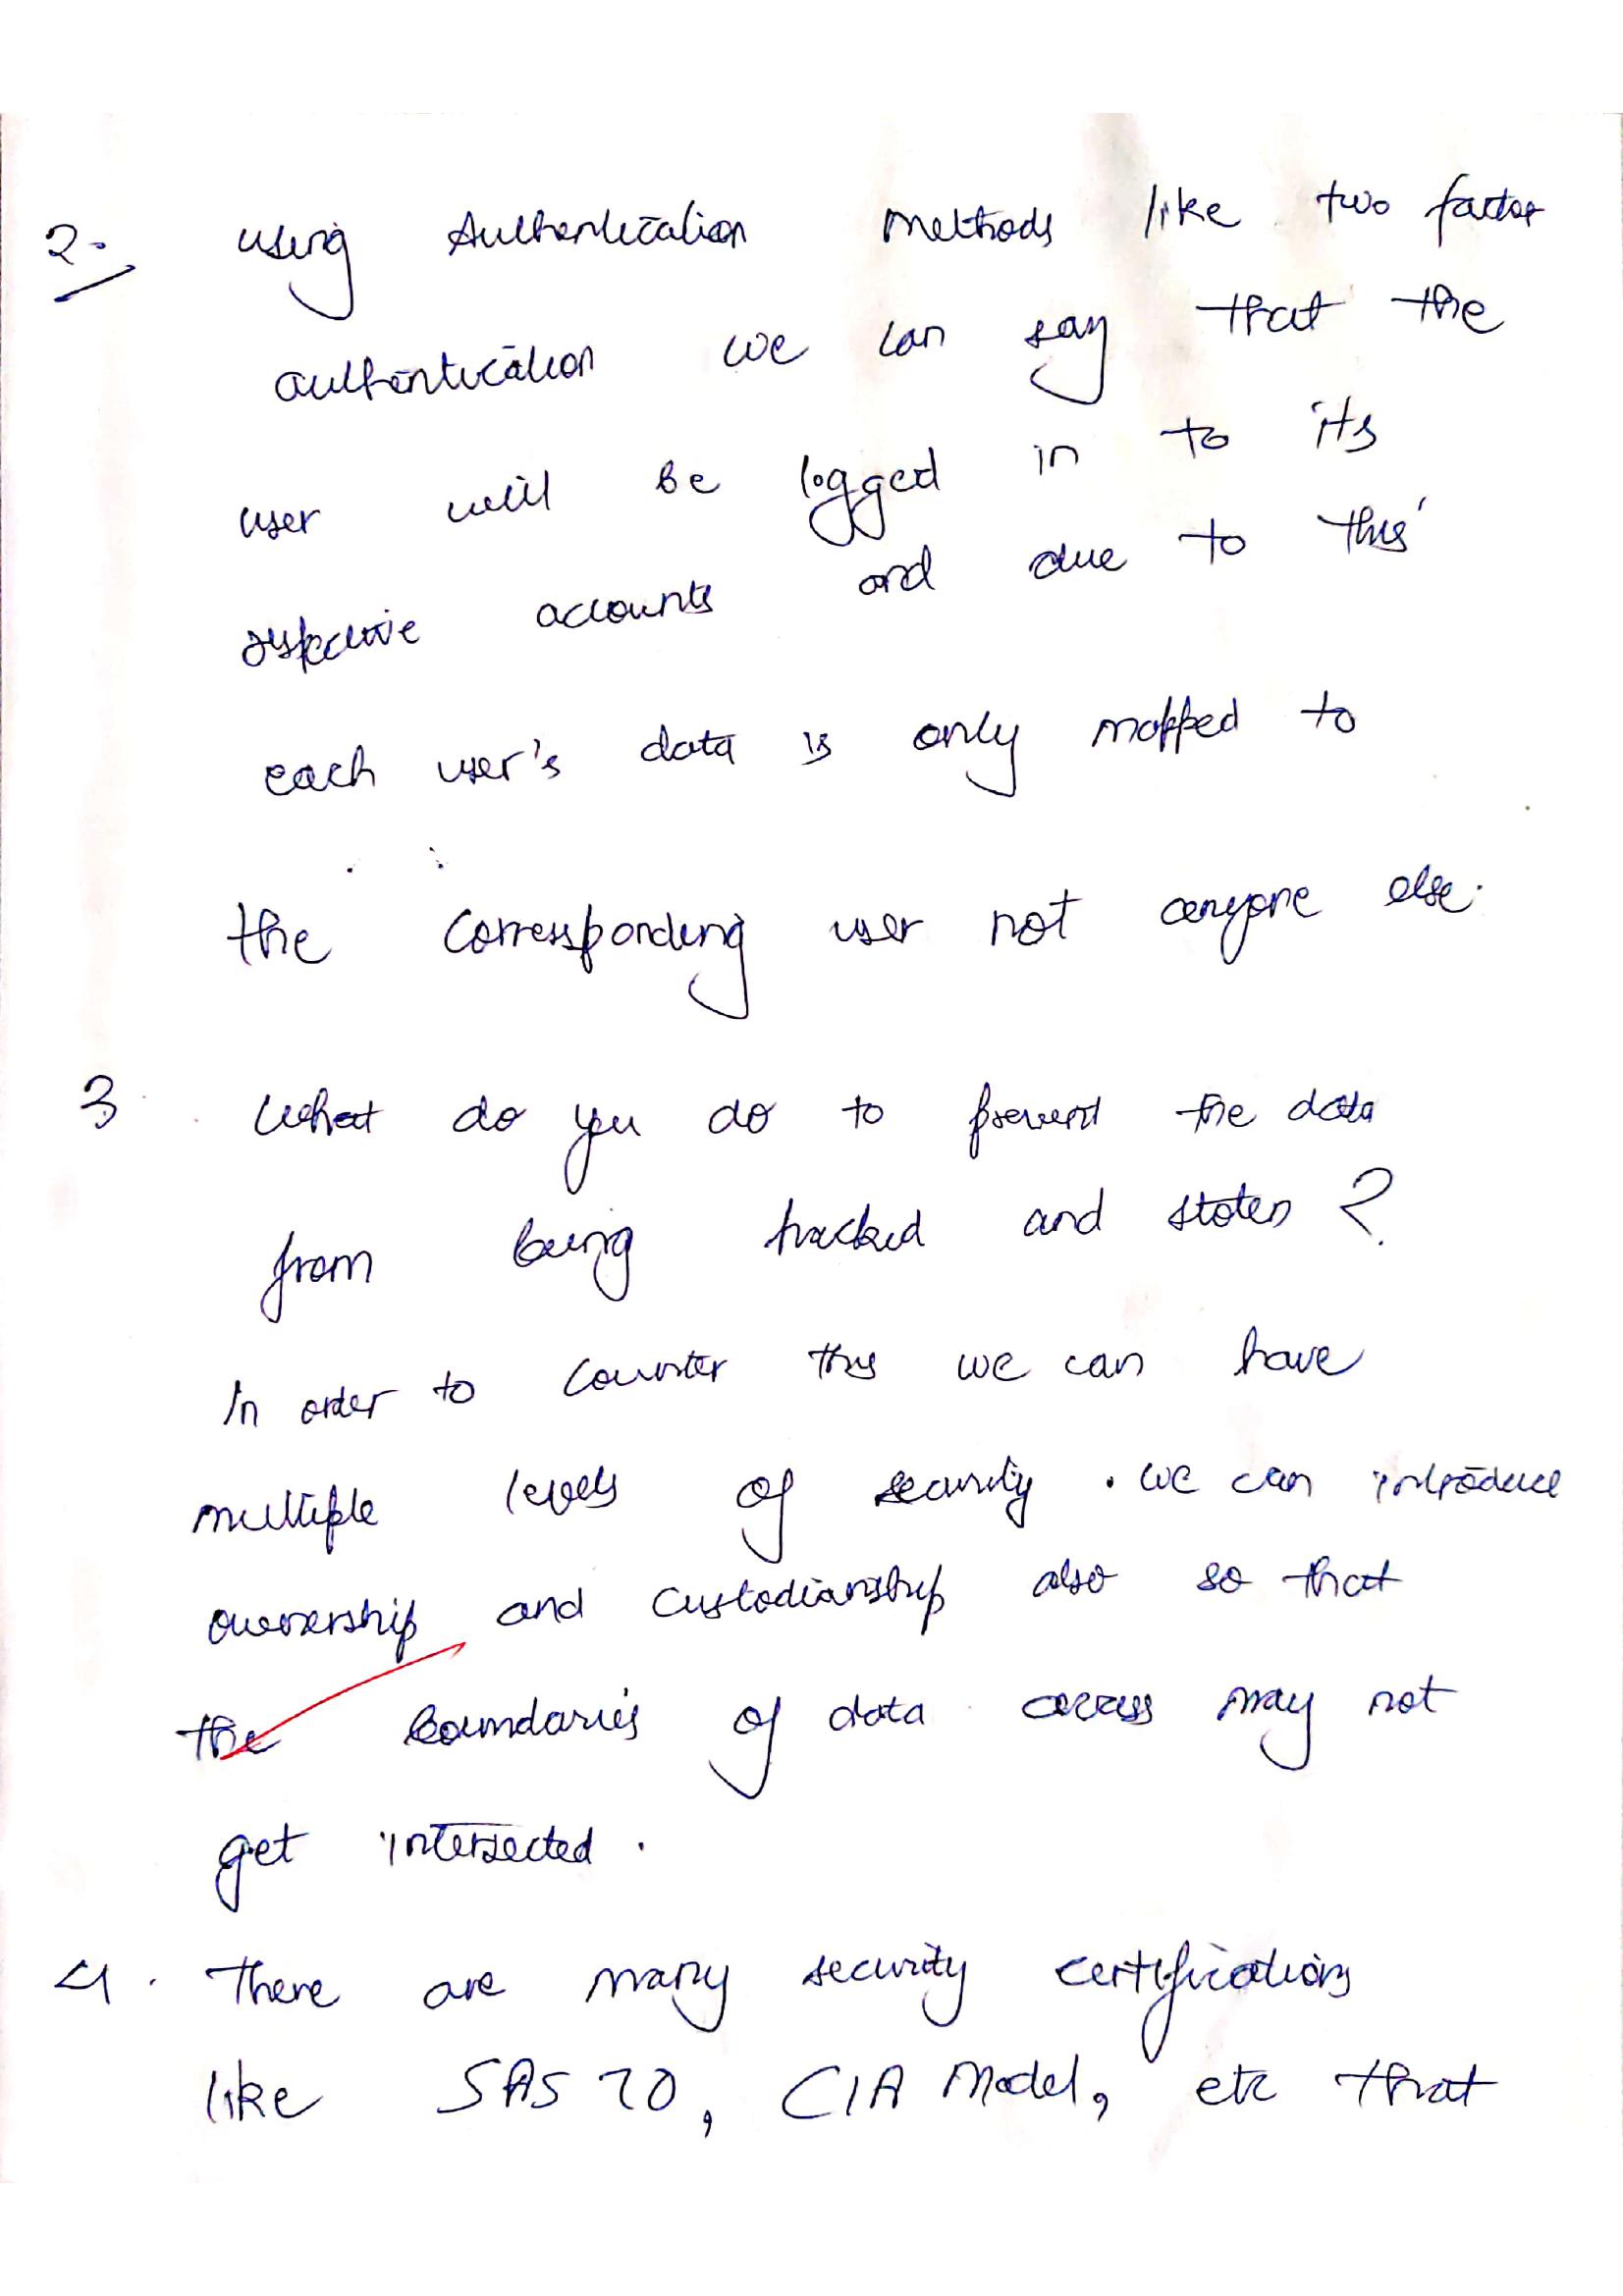 2. Using Authentication Methods like two factor
authentication we can say that the
user will be logged in to its
respective accounts and due to this
each user's data is only mapped to
the corresponding user not anyone else.
3. What do you do to prevent the data
from being hacked and stolen ?
In order to counter this we can have
multiple levels of security . we can introduce
ownership and custodianship also so that
the boundaries of data access may not
get intersected .
4. There are many security certifications
like SAS 70, CIA Model, etc that